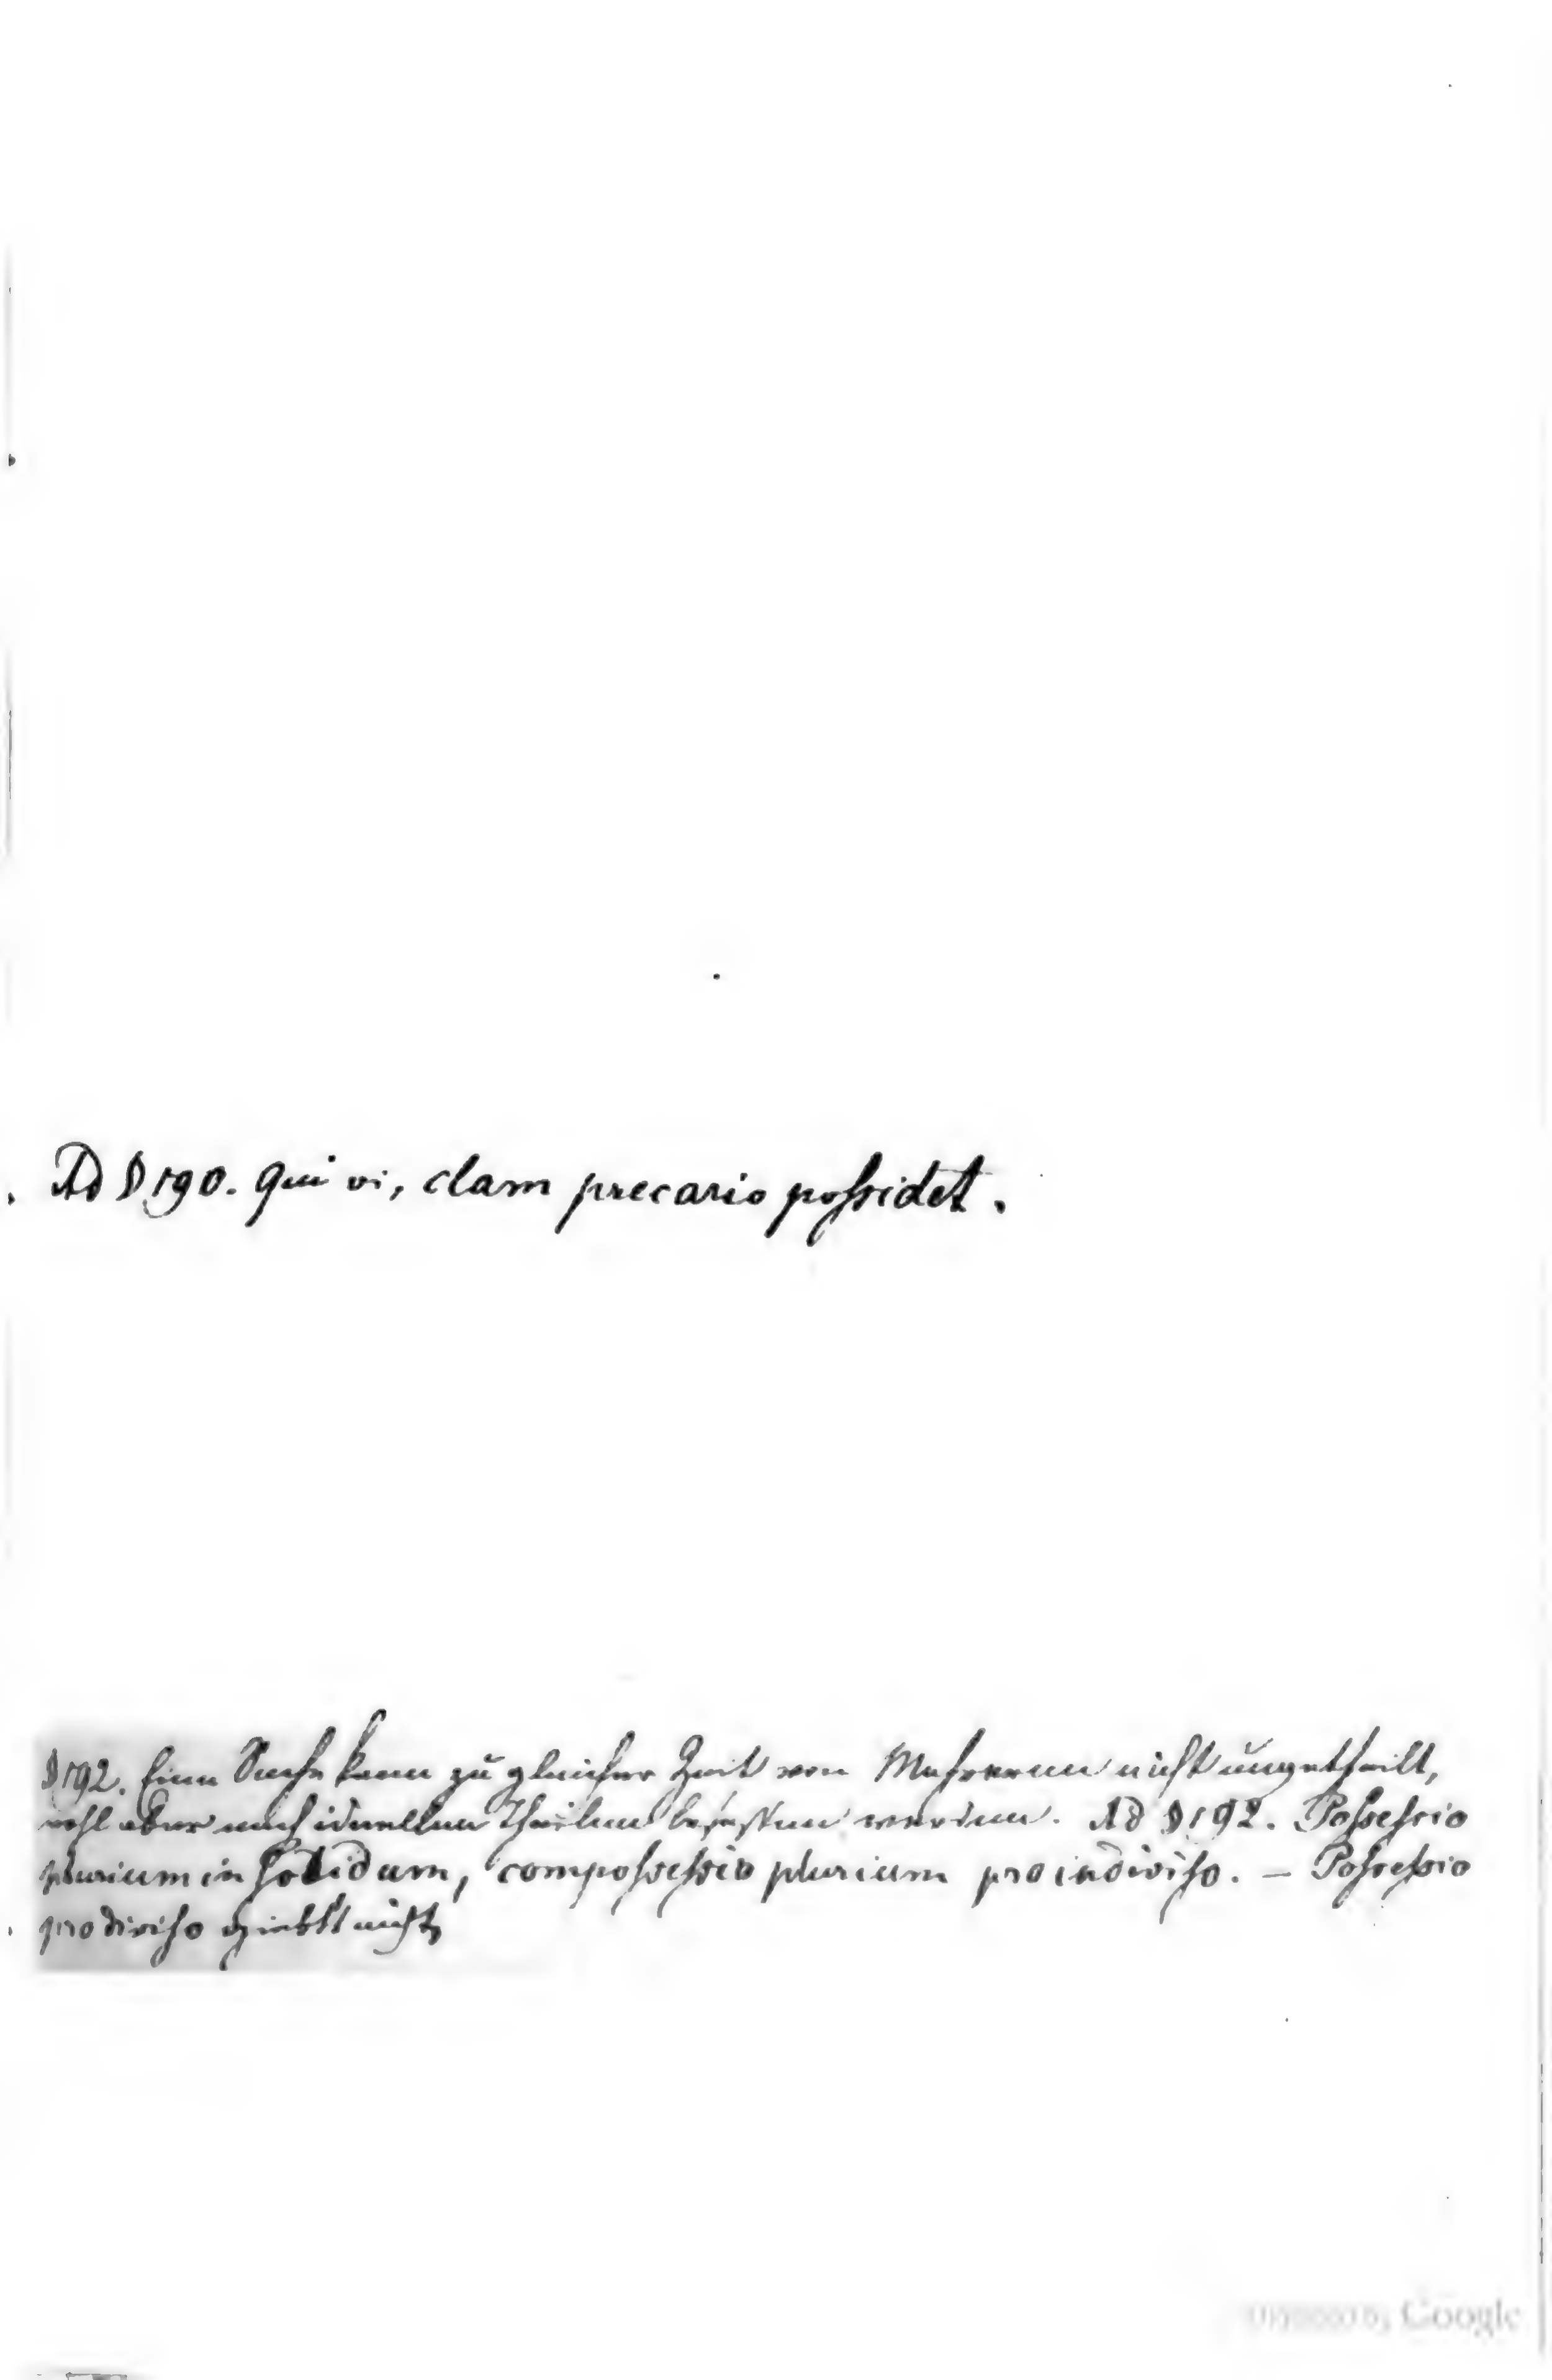 Ad § 190. Qui vi, clam precario possidet.
§ 192. Eine Sache kann zu gleicher Zeit von Mehreren nicht ungetheilt,
wohl aber nach ideellen Theilen besessen werden. Ad § 192. Possessio
plurium in solidum, compossessio plurium pro indiviso. — Possessio
pro diviso giebt's nicht
Digitized by Google